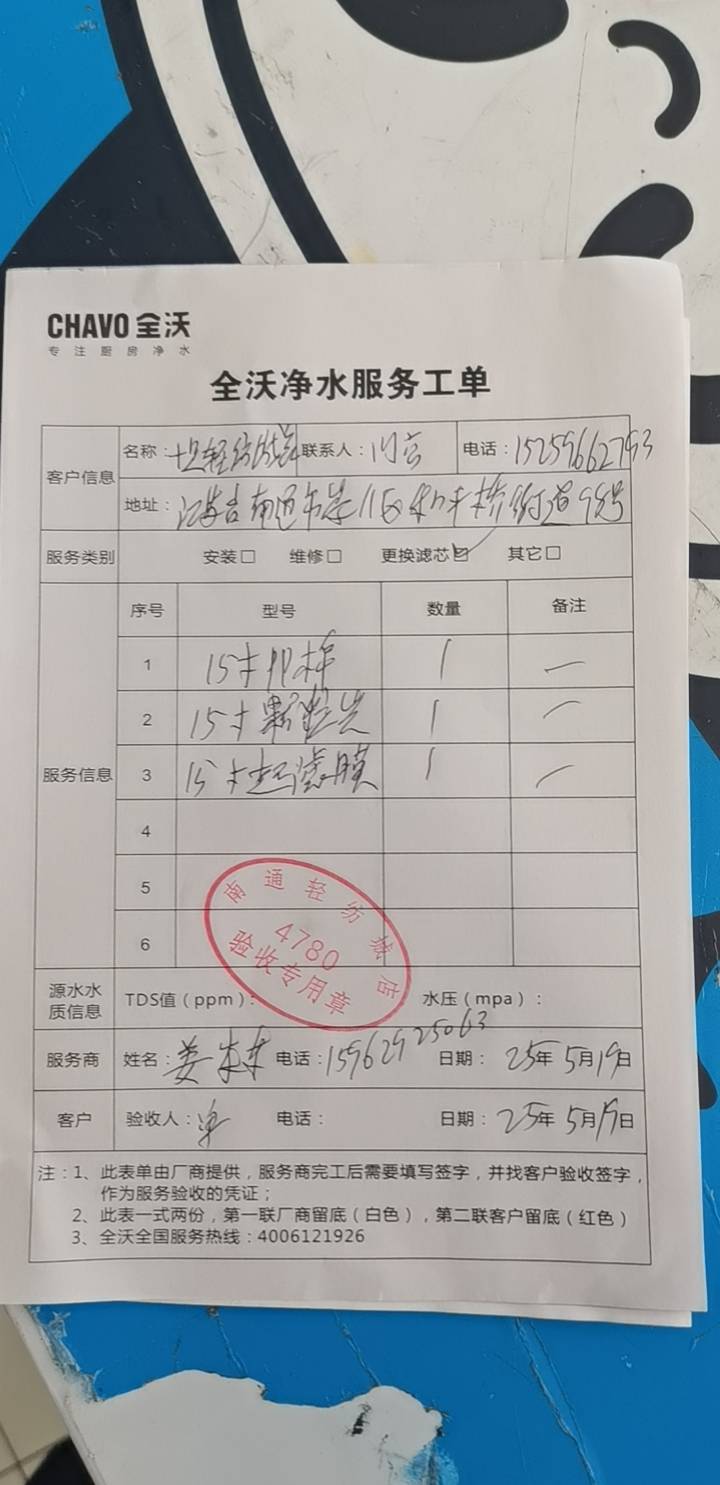 CHAVO 全沃
专注厨房净水
全沃净水服务工单
客户信息
名称： 联系人： 电话：15259662793
地址：江苏省南通市
服务类别 安装□ 维修□ 更换滤芯☑ 其它□
服务信息
序号 型号 数量 备注
1 15寸PP棉 1 —
2 15寸颗粒炭 1 —
3 15寸超滤膜 1 —
4
5
6
南通轻纺城店
4780
验收专用章
源水水质信息 TDS值（ppm）： 水压（mpa）：
服务商 姓名：姜 电话：15962925063 日期：25年5月19日
客户 验收人： 电话： 日期：25年5月19日
注：1、此表单由厂商提供，服务商完工后需要填写签字，并找客户验收签字，
作为服务验收的凭证；
2、此表一式两份，第一联厂商留底（白色），第二联客户留底（红色）
3、全沃全国服务热线：4006121926